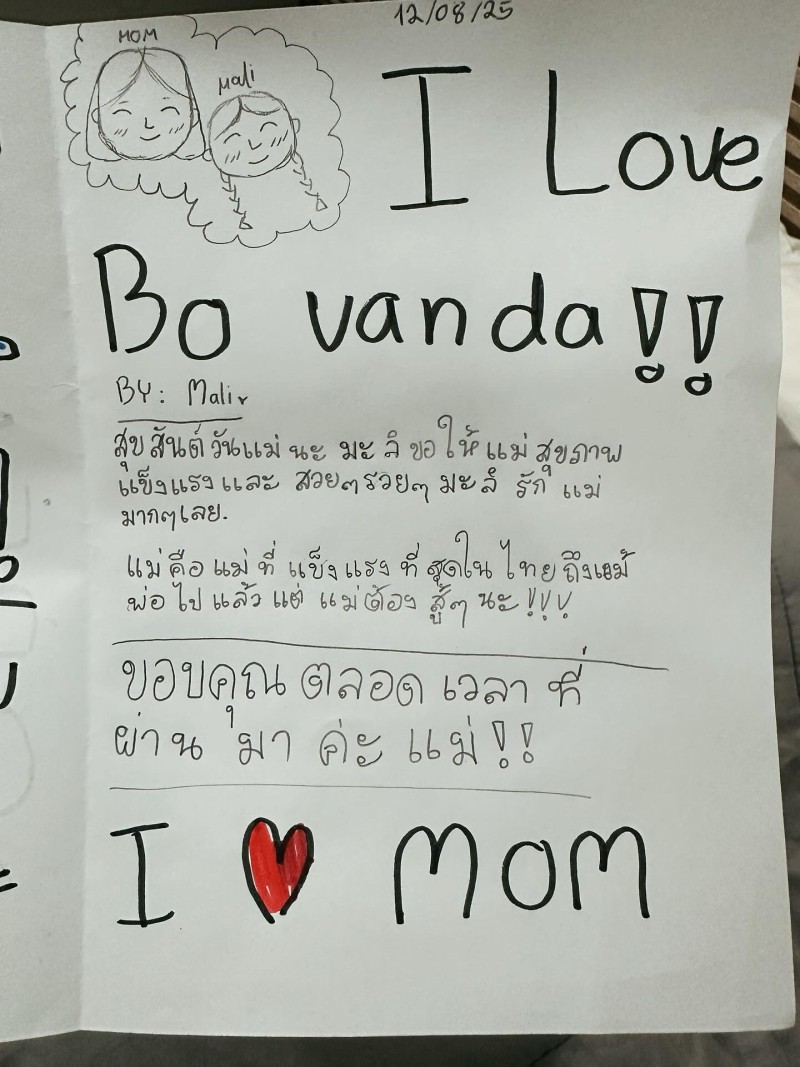 12/08/25
MOM
Mali
I Love
Bo vanda!!
BY: Mali
สุขสันต์วันแม่ นะ มะลิขอให้ แม่ สุขภาพ
แข็งแรง และ สวยๆรวยๆ มะลิ รัก แม่
มากๆเลย.
แม่ คือ แม่ ที่ แข็ง แรง ที่ สุดใน ไทย ถึงแม้
พ่อ ไป แล้ว แต่ แม่ต้อง สู้ๆ นะ!!!
ขอบคุณ ตลอด เวลา ที่
ผ่าน มา ค่ะ แม่!!
I ♥ MOM